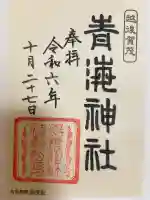 越後賀茂
青海神社
奉拝
令和六年
十月二十七日